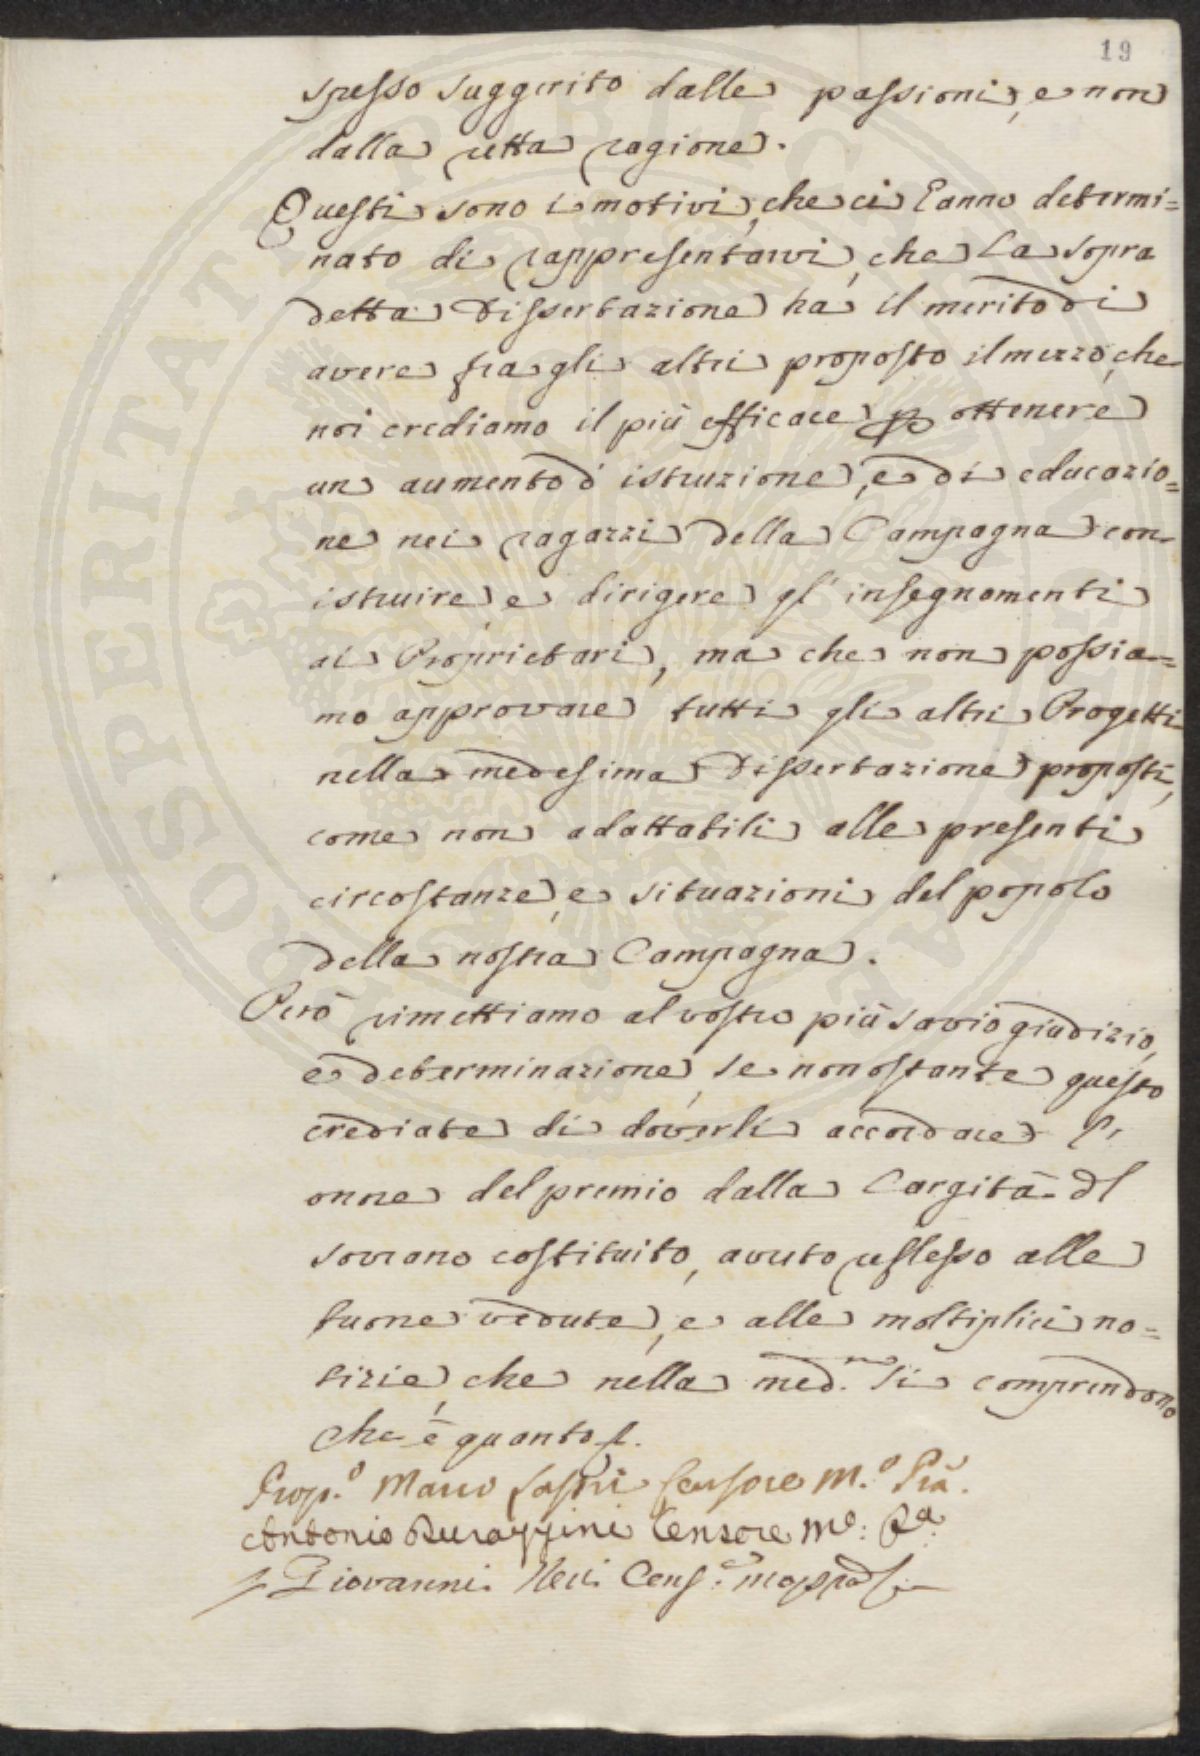 19
spesso suggerito dalle passioni, e non
dalla retta ragione.
Questi sono i motivi, che ci hanno determi=
nato di rappresentarvi, che la sopra
detta Dissertazione ha il merito di
avere fra gli altri proposto il mezzo, che
noi crediamo il più efficace p ottenere
un aumento d' istruzione, e di educazio=
ne nei ragazzi della Campagna con
istruire, e dirigere gl' insegnamenti
ai Proprietari, ma che non possia=
mo approvare tutti gli altri Progetti
nella medesima Dissertazione proposti,
come non adattabili alle presenti
circostanze, e situazioni del popolo
della nostra Campagna.
Però rimettiamo al vostro più savio giudizio,
e determinazione, se nonostante questo
crediate di doverli accordare l'
onore del premio dalla Largità dl
sovrano costituito, avuto reflesso alle
buone vedute, e alle moltiplici no=
tizie, che nella med.ma si comprendono
che è quanto
Prop.o Marco Lastri Censore M.o Pra.
Antonio Durazzini Censore Mo: Pa
Giovanni Neri Cens.e
PROSPERITATI PUBLICAE AUGENDAE